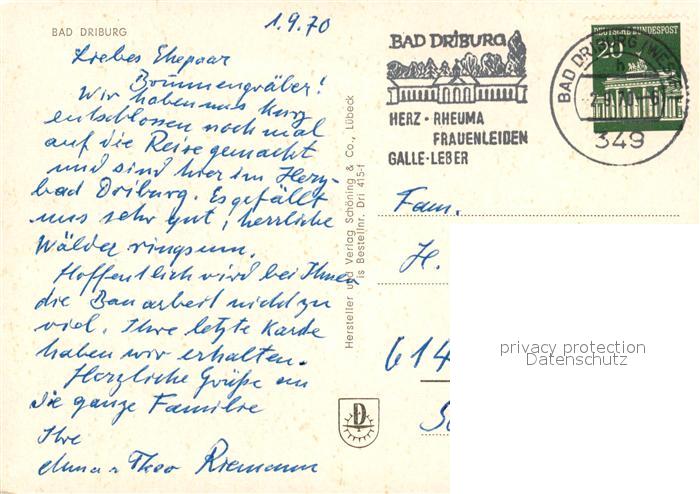 BAD DRIBURG
1.9.70
Liebes Ehepaar
Brunnengräber!
Wir haben uns kurz
entschlossen noch mal
auf die Reise gemacht
und sind hier im Herz-
bad Driburg. Es gefällt
uns sehr gut, herrliche
Wälder ringsum.
Hoffentlich wird bei Ihnen
die Bauarbeit nicht zu
viel. Ihre letzte Karte
haben wir erhalten.
Herzliche Grüße an
die ganze Familie
Ihre
Theo Riemann
Hersteller und Verlag Schöning & Co., Lübeck
is Bestellnr. Dri 415-f
BAD DRIBURG
HERZ · RHEUMA
FRAUENLEIDEN
GALLE · LEBER
DEUTSCHE BUNDESPOST
20
BAD DRIBURG (WESTF)
h
-2.9.70.-6
349
Fam.
H.
614
privacy protection
Datenschutz
D